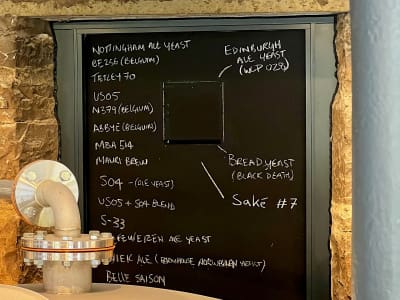 NOTTINGHAM ALE YEAST
BE256 (BELGIUM)
TETLEY 70
US05
N379 (BELGIUM)
ABBYE (BELGIUM)
MBA 514
MAURI BREW
S04 - (ALE YEAST)
US05 + S04 BLEND
S-33
ALE YEAST
ALE
BELLE SAISON
EDINBURGH
ALE YEAST
(WLP 028)
BREAD YEAST
(BLACK DEATH)
SAKÉ #7